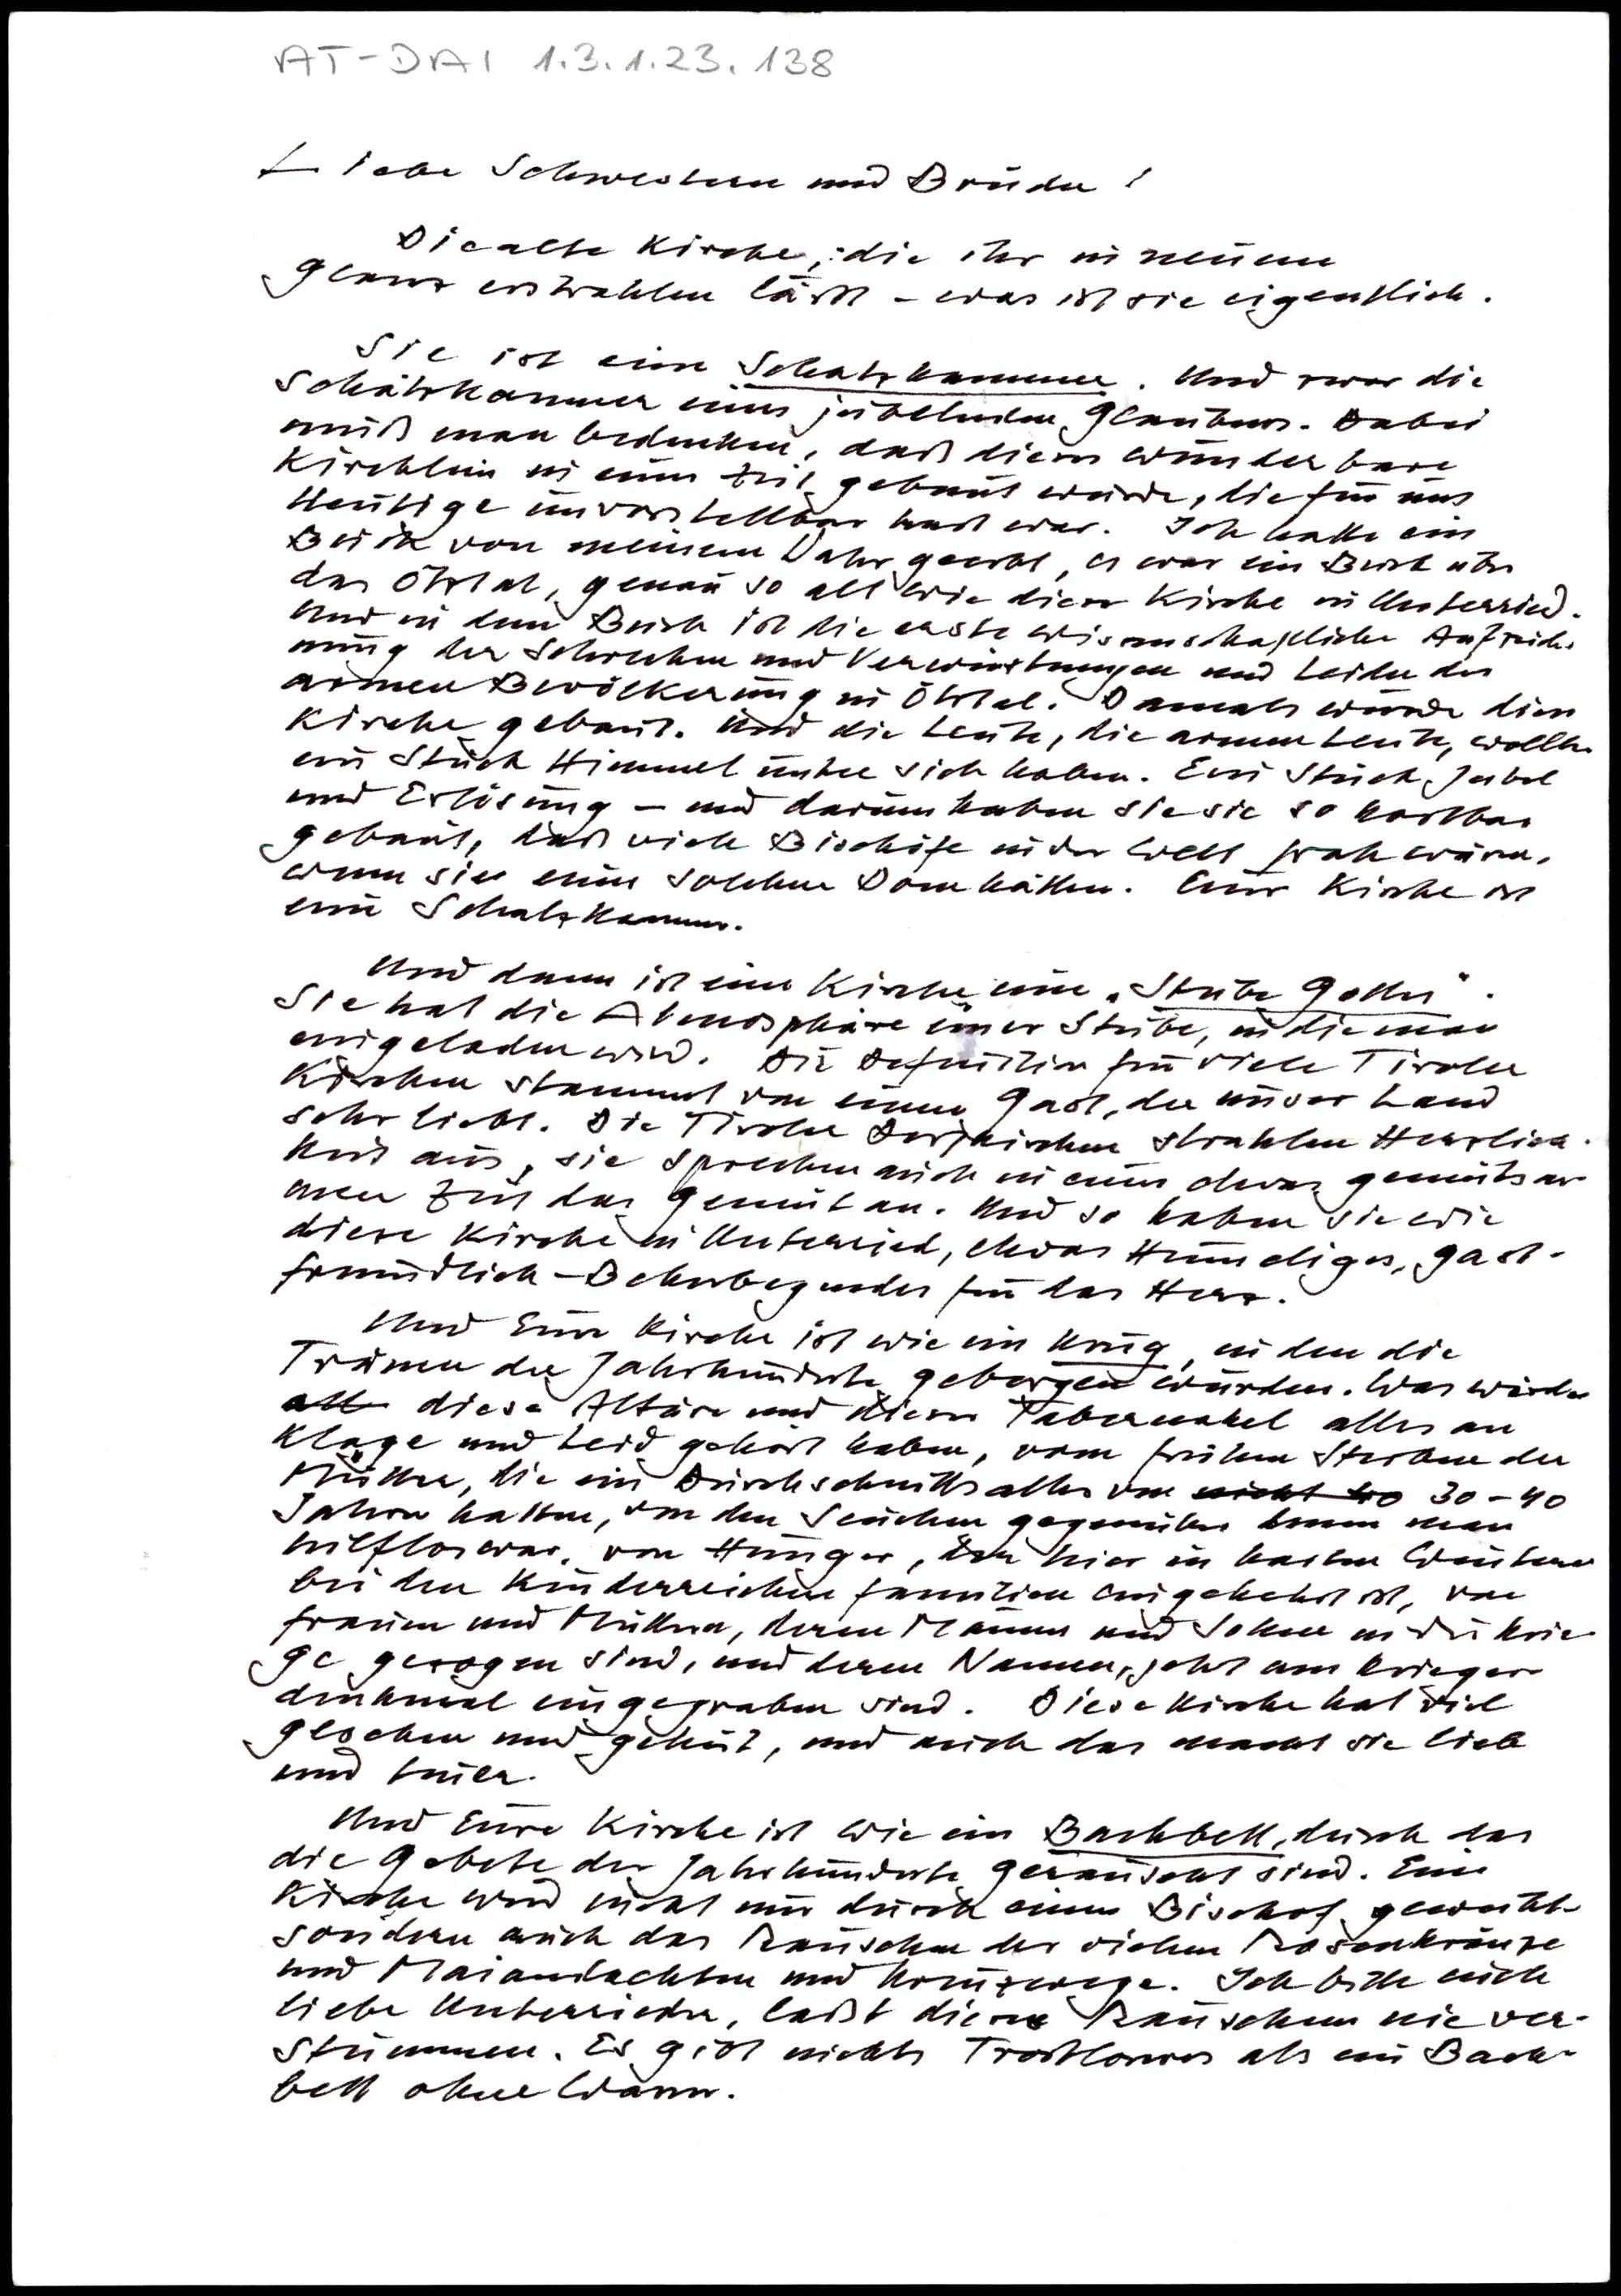 AT-DAI 1.3.1.23.138
Liebe Schwestern und Brüder!
Die alte Kirche, die ihr in neuem
Glanz erstrahlen läßt - was ist sie eigentlich.
Sie ist eine Schatzkammer. Und zwar die
Schatzkammer eines jubelnden Glaubens. Dabei
muß man bedenken, daß dieses wunderbare
Kirchlein in einer Zeit gebaut wurde, die für uns
Heutige unvorstellbar hart war. Ich hatte ein
Buch von meinem Vater geerbt, es war ein Buch über
das Ötztal, genau so alt wie diese Kirche in Unterried.
Und in dem Buch ist die erste wissenschaftliche Aufzeich-
nung der Schrecken und Verwüstungen und Leiden der
armen Bevölkerung im Ötztal. Damals wurde diese
Kirche gebaut. Und die Leute, die armen Leute, wollten
ein Stück Himmel unter sich haben. Ein Stück Jubel
und Erlösung - und darum haben sie sie so kostbar
gebaut, daß viele Bischöfe in der Welt froh wären,
wenn sie einen solchen Dom hätten. Eure Kirche ist
eine Schatzkammer.
Und dann ist eure Kirche eine "Stube Gottes".
Sie hat die Atmosphäre einer Stube, in die man
eingeladen wird. Die Definition für viele Tiroler
Kirchen stammt von einem Gast, der unser Land
sehr liebt. Die Tiroler Dorfkirchen strahlen Herrlich-
keit aus, sie sprechen auch in einer etwas gemütsar-
men Zeit das Gemüt an. Und so haben sie wie
diese Kirche in Unterried, etwas Heimeliges, gast-
freundlich-Beherbergendes für das Herz.
Und Eure Kirche ist wie ein Krug, in den die
Tränen der Jahrhunderte geborgen wurden. Was würden
alle diese Altäre und dieser Tabernakel alles an
Klage und Leid gehört haben, vom frühen Sterben der
Mütter, die ein Durchschnittsalter von nicht 40 30-40
Jahren hatten, von den Seuchen gegenüber denen man
hilflos war, vom Hunger, der hier in harten Wintern
bei den kinderreichen Familien eingekehrt ist, von
Frauen und Müttern, deren Männer und Söhne in die Krie-
ge gezogen sind, und deren Namen jetzt am Krieger-
denkmal eingegraben sind. Diese Kirche hat viel
gesehen und gehört, und auch das macht sie lieb
und teuer.
Und Eure Kirche ist wie ein Bachbett, durch das
die Gebete der Jahrhunderte gerauscht sind. Eine
Kirche wird nicht nur durch einen Bischof geweiht -
sondern auch das Rauschen der vielen Rosenkränze
und Maiandachten und Kreuzwege. Ich bitte euch
liebe Unterrieder, laßt dieses Rauschen nie ver-
stummen. Es gibt nichts Trostloseres als ein Bach-
bett ohne Wasser.